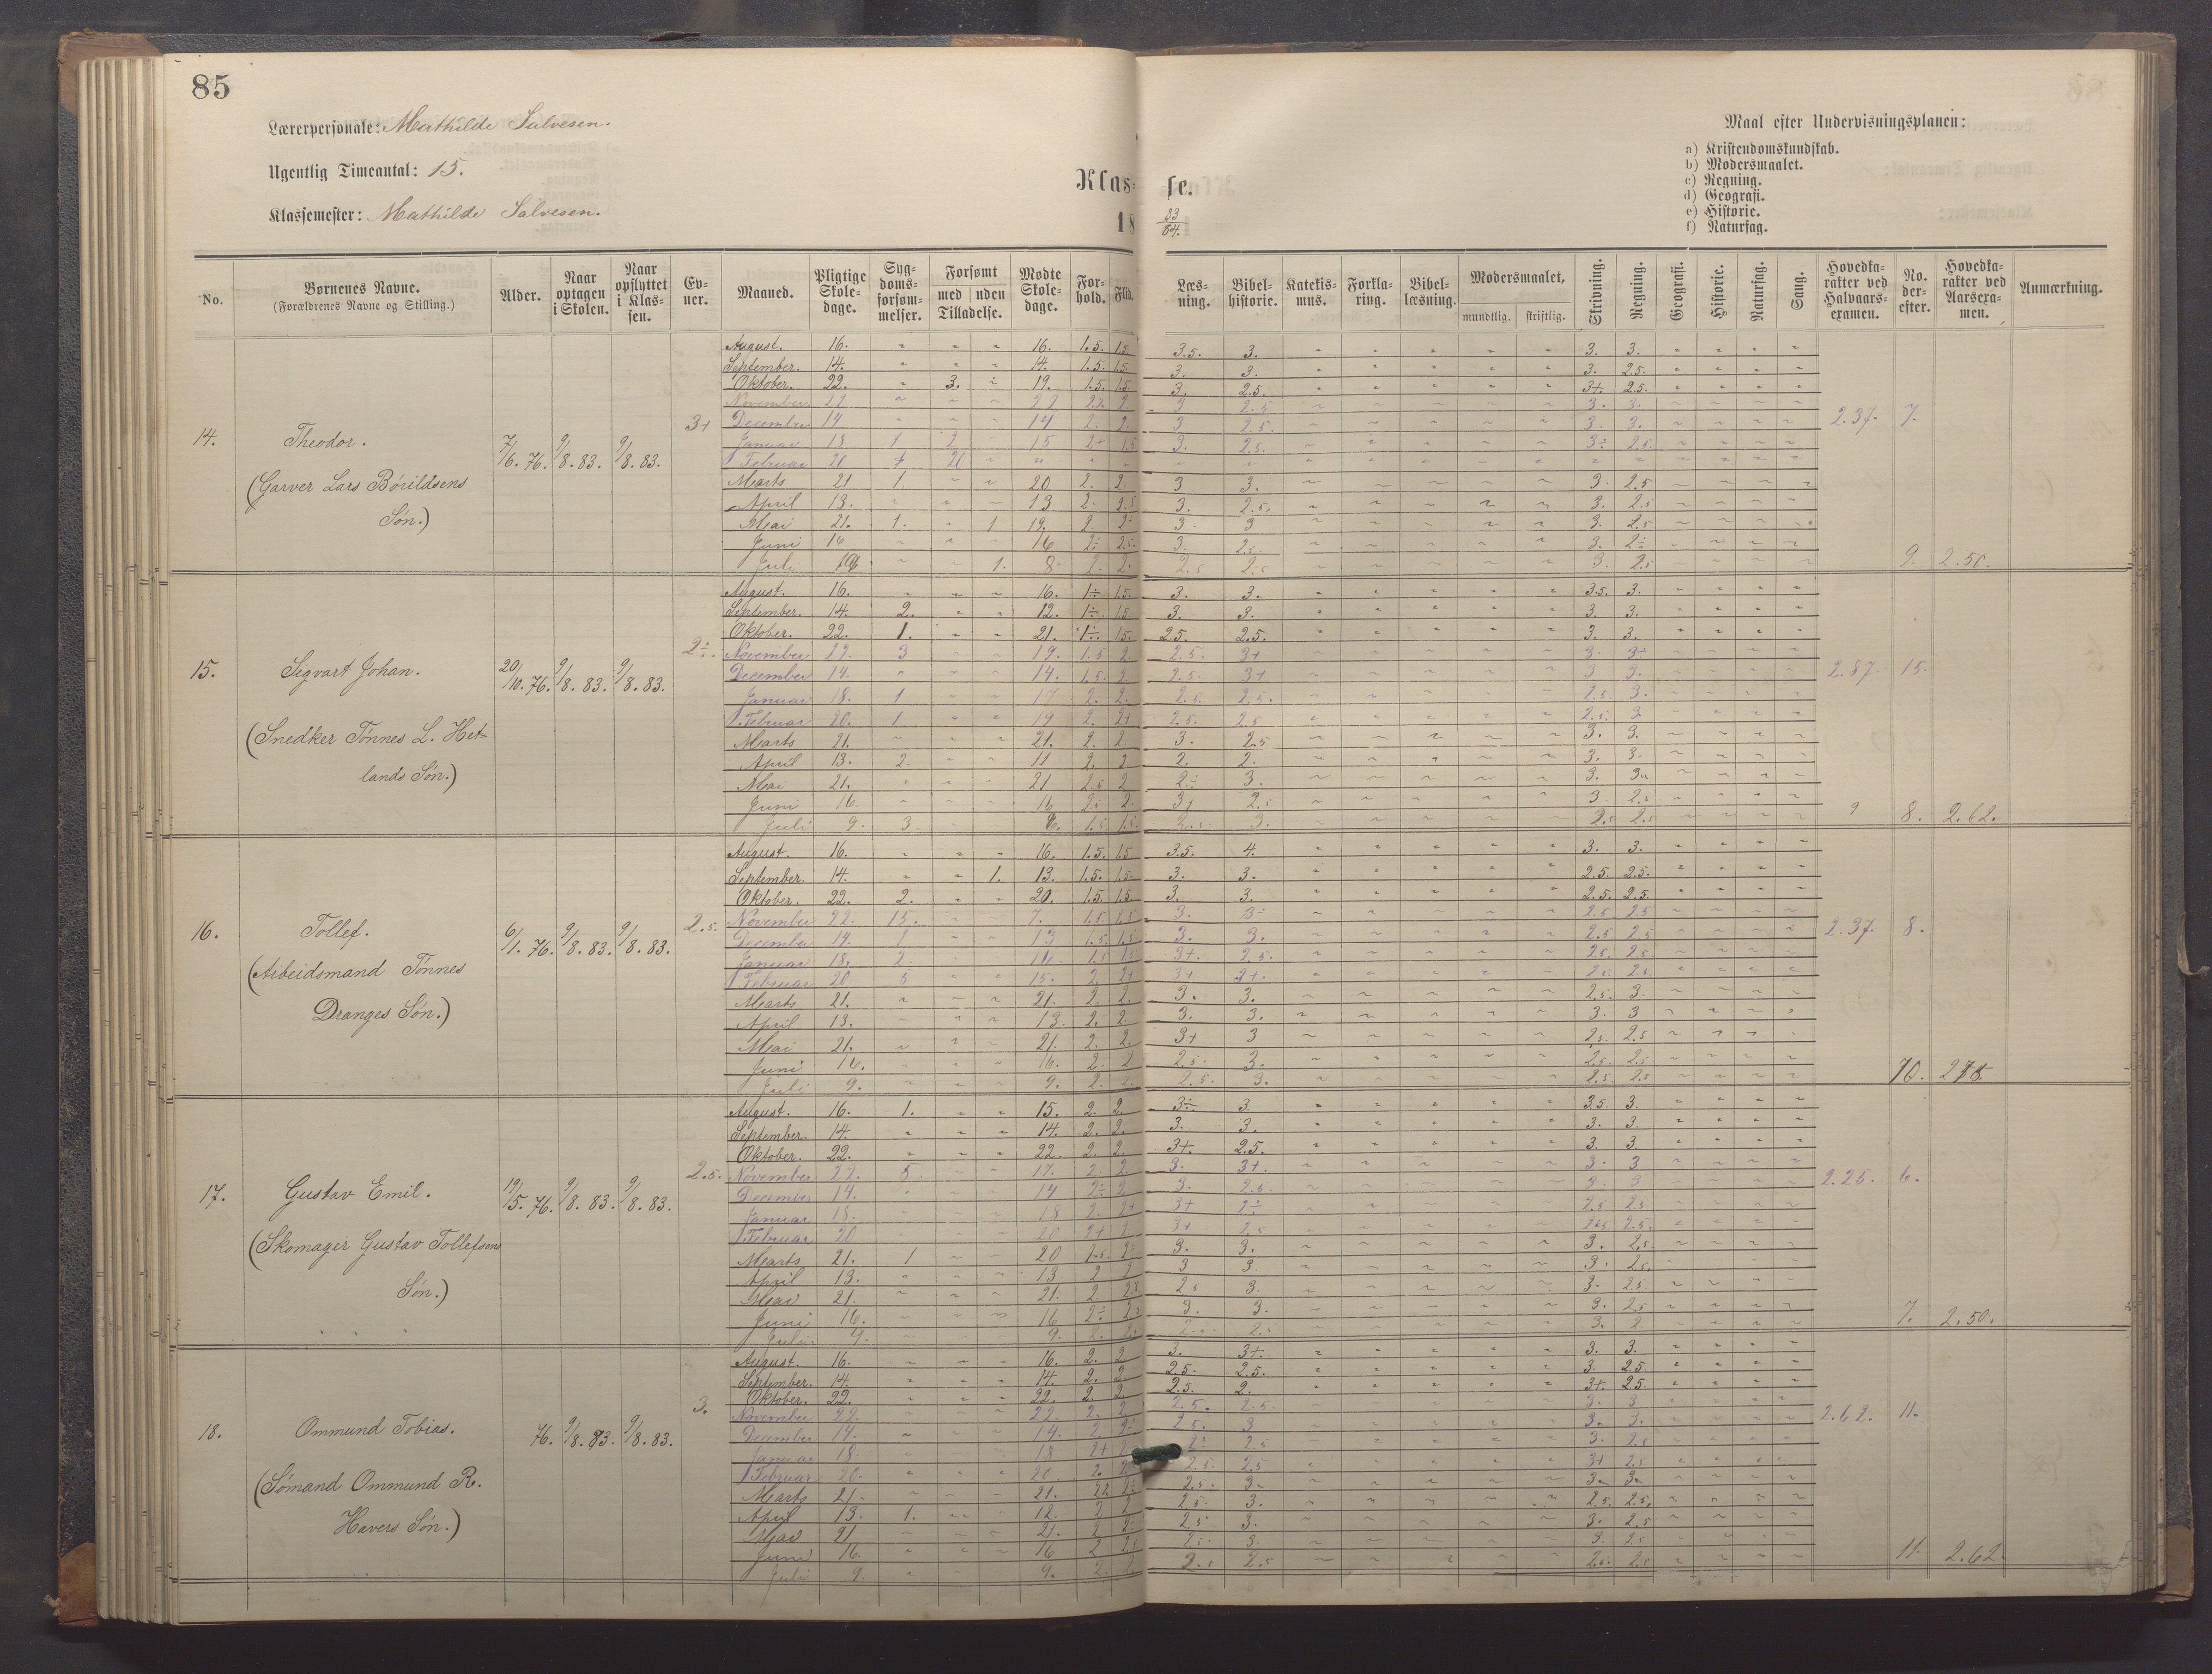 85
Lærerpersonale: Mathilde Salvesen.
Ugentlig Timeantal: 15.
Klassemester: Mathilde Salvesen.
Klas- se.
18 83/84.
Maal efter Undervisningsplanen:
a) Kristendomskundskab.
b) Modersmaalet.
c) Regning.
d) Geografi.
e) Historie.
f) Naturfag.
No. Børnenes Navne. (Forældrenes Navne og Stilling.) Alder. Naar optagen i Skolen. Naar opflyttet i Klassen. Evner. Maaned. Pligtige Skoledage. Sygdomsforsømmelser. Forsømt med uden Tilladelse. Mødte Skoledage. Forhold. Flid. Læsning. Bibelhistorie. Katekismus. Forklaring. Bibellæsning. Modersmaalet, mundtlig. skriftlig. Skrivning. Regning. Geografi. Historie. Naturfag. Sang. Hovedkarakter ved Halvaarsexamen. No. derefter. Hovedkarakter ved Aarsexamen. Anmærkning.
14. Theodor. 7/6. 76. 9/8. 83. 9/8. 83. 3+ 2.37. 7.
(Garver Lars Börildsens
Søn.)
August. 16. " " " 16. 1.5. 1.5. 3.5. 3. " " " " " 3. 3. " " " "
September. 14. " " " 14. 1.5. 1.5. 3. 3. " " " " " 3. 2.5. " " " "
Oktober. 22. " 3. " 19. 1.5. 1.5 3. 2.5. " " " " " 3+. 2.5. " " " "
November 22
December 14 14 2. 2. 3 2.5. 3. 3.
Januar 18 1 2 15 2+ 1.5 3. 2.5. 3÷ 2.5.
Februar 20
Marts 21 1 20 2. 2 3 3. 3. 2.5
April 13. 13 2. 2.5 3. 2.5. 3. 2.5
Mai 21. 1. 1 19. 2. 2 3 3 3. 2.5
Juni 16 16 2÷ 2.5. 3. 2.5. 3. 2÷
Juli 1. 8 2. 2. 2.5 2.5 3. 2.5 9. 2.50.
15. Sigvart Johan. 20/10. 76. 9/8. 83. 9/8. 83. 2÷. 2.87. 15.
(Snedker Tönnes L. Het-
lands Søn.)
August. 16. " " " 16. 1÷ 1.5. 3. 3. " " " " " 3.5. 3. " " " "
September. 14. 2. " " 12. 1÷. 1.5 3. 3. " " " " " 3. 3. " " " "
Oktober. 22. 1. " " 21. 1÷. 1.5. 2.5. 2.5. " " " " " 3. 3. " " " "
November 22. 3 19. 1.5 2 2.5. 3+ 3. 3÷
December 14. 14. 1.5. 2. 2.5. 3+ 3 3.
Januar 18. 1 17 2. 2. 2.5. 2.5. 2.5. 3.
Februar 20. 1 19 2. 2+ 2.5. 2.5 2.5. 3.
Marts 21. 21. 2. 2 3. 2.5 3. 3.
April 13. 2. 11 2. 2 2. 2. 3. 3.
Mai 21. 21 2.5 2 2÷ 3. 3.
Juni 16. 16 2. 3+ 2.5 3. 2.5
Juli 9. 3 6. 1.5 1.5 3. 2.5 2.5 8. 2.62.
16. Tollef. 6/1. 76. 9/8. 83. 9/8. 83. 2.5. 2.37. 8.
(Arbeidsmand Tönnes
Dranges Søn.)
August. 16. " " " 16. 1.5. 1.5 3.5. 4. " " " " " 3. 3. " " " "
September. 14. " " 1. 13. 1.5. 1.5. 3. 3. " " " " " 2.5. 2.5. " " " "
Oktober. 22. 2. " " 20. 1.5. 1.5 3. 3. " " " " " 2.5. 2.5. " " " "
November 22. 15. 7. 1.5 1.5 3. 3÷ 2.5 2.5
December 14. 1 13 1.5. 1.5. 3. 3. 2.5 2.5
Januar 18. 2. 16. 1.5 1.5 3+. 2.5. 2.5. 2.5.
Februar 20 5 15. 2. 2+ 3+ 2.5. 2.5.
Marts 21. 21. 2. 2. 3. 3. 2.5. 3.
April 13. 13. 2. 2. 3. 3. 3. 3
Mai 21. 21. 2. 2. 3+ 3 2.5. 2.5
Juni 16. 16. 2. 2. 2.5. 3. 2.5. 2.5
Juli 9. 9. 2. 2. 2.5. 3. 2.5 2.5 10.
17. Gustav Emil. 19/5. 76. 9/8. 83. 9/8. 83. 2.5. 2.25. 6.
(Skomager Gustav Tollefsens
Søn.)
August. 16. 1. " " 15. 2. 2. 3÷ 3. " " " " " 3.5. 3. " " " "
September. 14. " " " 14. 2. 2. 3. 3. " " " " " 3. 3. " " " "
Oktober. 22. " " " 22. 2. 2. 3+. 2.5. " " " " " 3. 3. " " " "
November 22. 5. 17. 2. 2 3. 3+. 3. 3
December 14. 14 2÷ 2 3. 2.5. 3. 3
Januar 18. 18 2. 2+ 3+ 2÷ 2.5 2.5
Februar 20 20 2+ 3+ 2.5 2.5.
Marts 21. 1 20 3. 3. 3. 2.5
April 13. 13 2 2 3 3. 3. 2.5.
Mai 21. 21. 2. 2.5 3. 3. 2.5.
Juni 16. 16 2÷ 3. 3. 3. 2.5
Juli 9. 9. 2. 2. 2.5 3. 2 7. 2.50.
18. Ommund Tobias. 76. 9/8. 83. 9/8. 83. 3. 2.62. 11.
(Sömand Ommund R.
Havers Søn.)
August. 16. " " " 16. 2. 2 3. 3+. " " " " " 3. 3. " " " "
September. 14. " " " 14. 2. 2. 2.5. 2.5. " " " " " 3. 2.5. " " " "
Oktober. 22. " " " 22. 2. 2. 2.5. 2. " " " " " 3+. 2.5. " " " "
November 22. 22. 2. 2 2.5. 2.5. 3. 3
December 14. 14. 2 2÷ 2.5. 3 3. 3.
Januar 18. 18 2+ 2÷ 2.5 3. 2.5
Februar 20. 20. 2. 2.5. 2.5 3+ 2.5
Marts 21. 21. 2÷ 2.5. 3. 3. 3.
April 13. 1. 12. 2 2 2.5. 3. 2.5. 2.5.
Mai 21 21. 2 2 2.5 3. 3. 2.5
Juni 16. 16 2 2.5 2.5. 3. 3. 2.5
Juli 9. 9. 2. 2. 2.5 2.5 2.5. 2.5 11. 2.62.